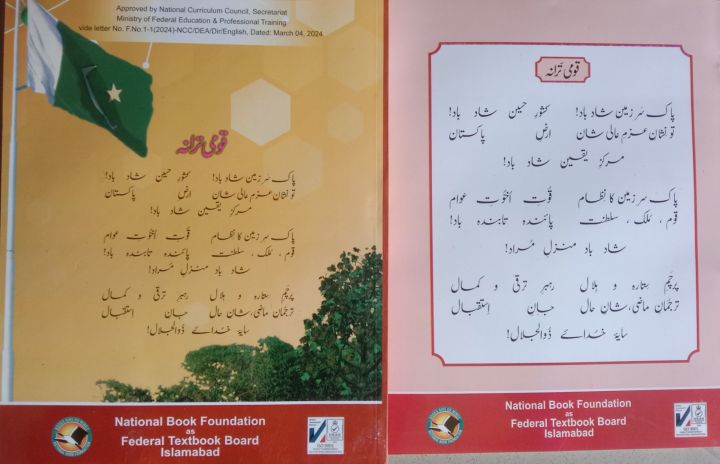 Approved by National Curriculum Council, Secretariat
Ministry of Federal Education & Professional Training
vide letter No. F.No.1-1(2024)-NCC/DEA/Dir/English, Dated: March 04, 2024
قومی ترانہ
پاک سَر زمین شاد باد! کشورِ حسین شاد باد!
تو نشانِ عزمِ عالی شان ارضِ پاکستان
مرکزِ یقین شاد باد!
پاک سر زمین کا نظام قُوّتِ اُخُوّتِ عوام
قوم ، مُلک ، سلطنت پائندہ تابندہ باد!
شاد باد منزلِ مُراد!
پرچمِ ستارہ و ہلال رہبرِ ترقی و کمال
ترجمانِ ماضی، شانِ حال جانِ اِستقبال
سایۂ خدائے ذوالجلال!
National Book Foundation
as
Federal Textbook Board
Islamabad
قومی ترانہ
پاک سَر زمین شاد باد! کشورِ حسین شاد باد!
تو نشانِ عزمِ عالی شان ارضِ پاکستان
مرکزِ یقین شاد باد!
پاک سر زمین کا نظام قُوّتِ اُخُوّتِ عوام
قوم ، مُلک ، سلطنت پائندہ تابندہ باد!
شاد باد منزلِ مُراد!
پرچمِ ستارہ و ہلال رہبرِ ترقی و کمال
ترجمانِ ماضی، شانِ حال جانِ اِستقبال
سایۂ خُدائے ذُوالجلال!
National Book Foundation
as
Federal Textbook Board
Islamabad